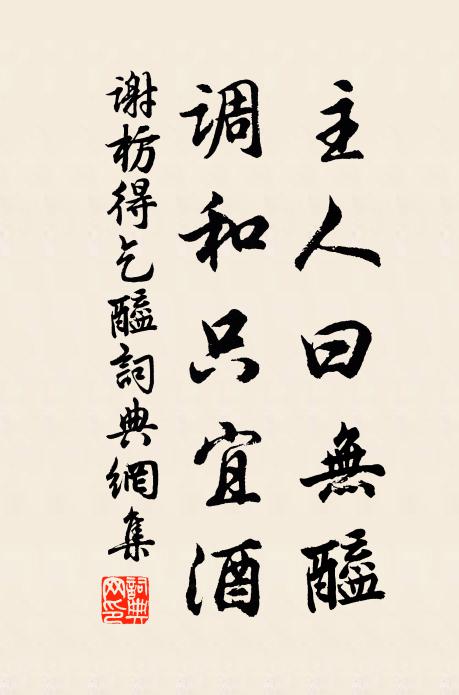 主人曰無醯
调和只宜酒
谢枋得乞醯詞典網集
詞典